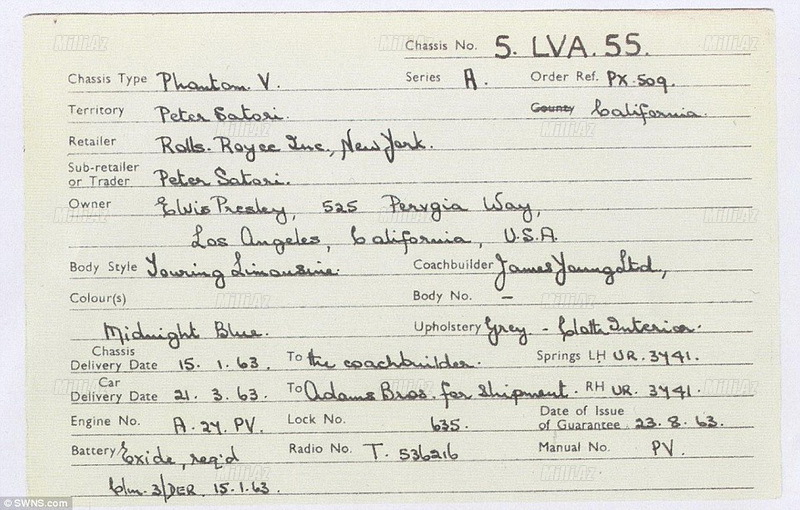 Chassis No. 5. LVA. 55.
Chassis Type Phantom V. Series A. Order Ref. PX.509.
Territory Peter Satori. County California.
Retailer Rolls-Royce Inc., New York.
Sub-retailer
or Trader Peter Satori.
Owner Elvis Presley, 525 Pervgia Way,
Los Angeles, California, U.S.A.
Body Style Touring Limousine. Coachbuilder James Young Ltd,
Colour(s) Body No. –
Midnight Blue. Upholstery Grey – Cloth Interior.
Chassis
Delivery Date 15. 1. 63. To the coachbuilder. Springs LH UR. 3741.
Car
Delivery Date 21. 3. 63. To Adams Bros. for shipment. RH UR. 3741.
Engine No. A. 27. PV. Lock No. 635. Date of Issue
of Guarantee 23. 8. 63.
Battery Exide, req'd Radio No. T. 536216 Manual No. PV.
3/DER. 15.1.63.
© SWNS.com
Milli.Az